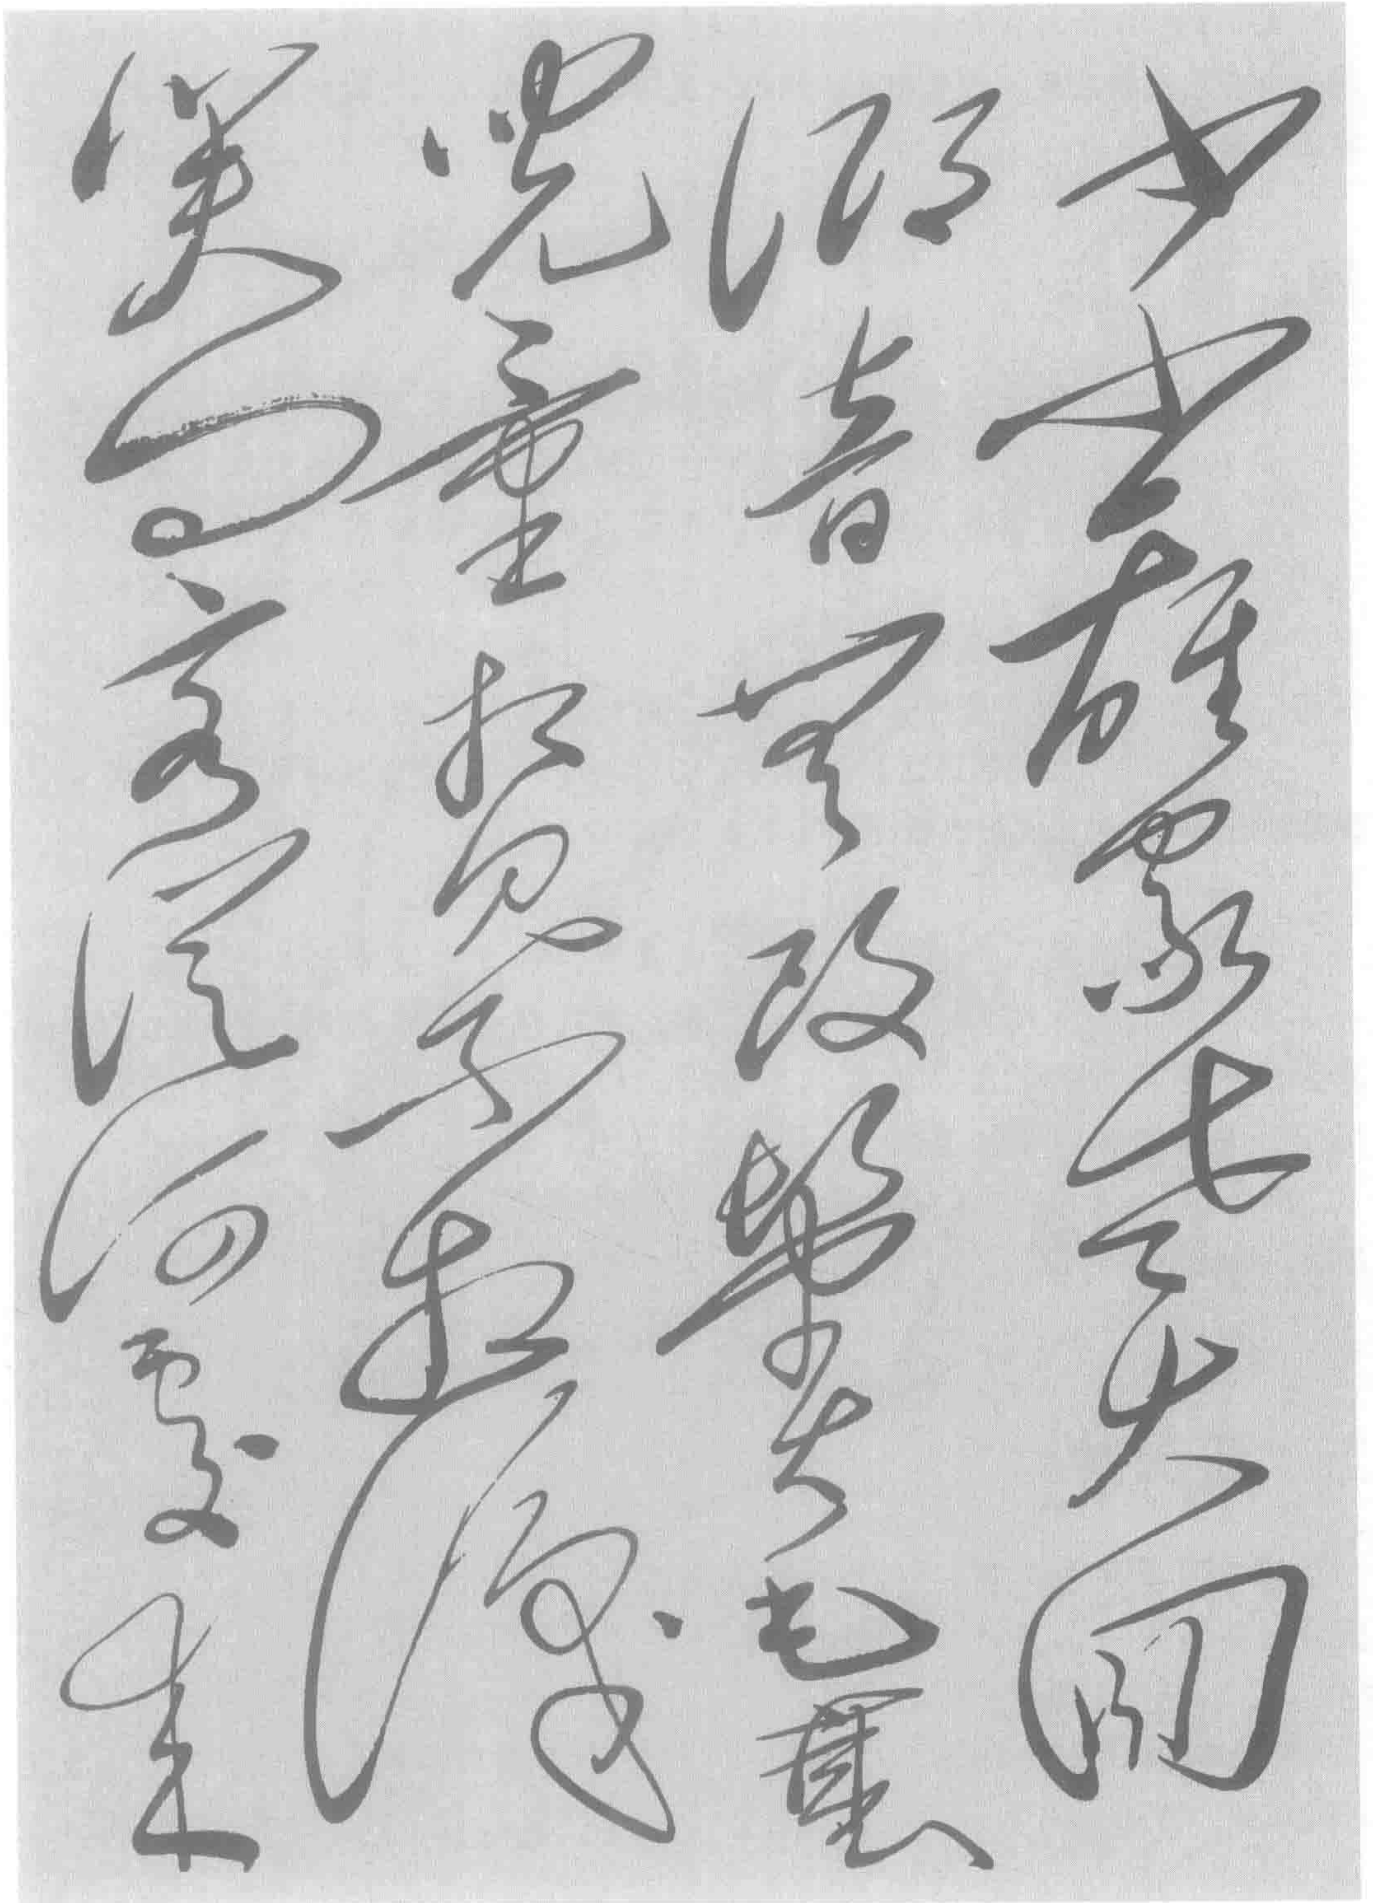 少小離家老大回
鄉音無改鬢毛衰
兒童相見不相識
笑問客從何處來